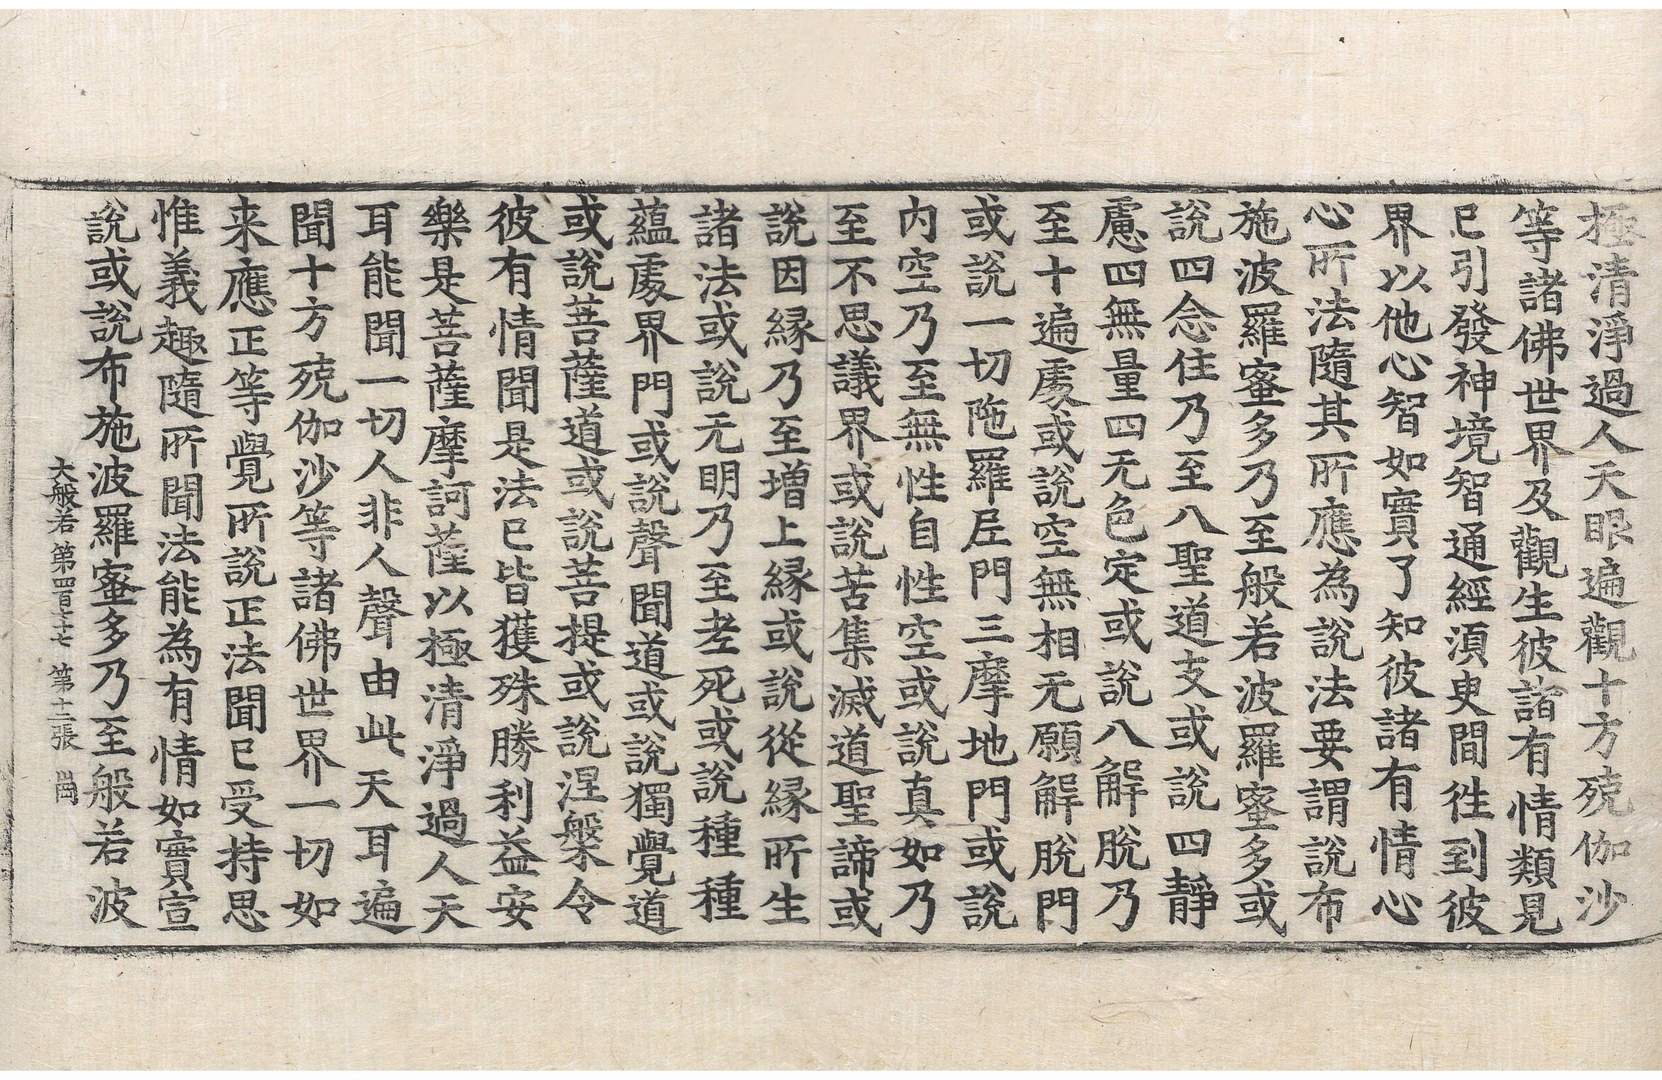 極清淨過人天眼遍觀十方殑伽沙
等諸佛世界及觀生彼諸有情類見
已引發神境智通經須臾間徃到彼
界以他心智如實了知彼諸有情心
心所法隨其所應為說法要謂說布
施波羅蜜多乃至般若波羅蜜多或
說四念住乃至八聖道支或說四靜
慮四無量四无色定或說八解脫乃
至十遍處或說空無相无願解脫門
或說一切陁羅尼門三摩地門或說
內空乃至無性自性空或說真如乃
至不思議界或說苦集滅道聖諦或
說因緣乃至增上緣或說從緣所生
諸法或說无明乃至老死或說種種
蘊處界門或說聲聞道或說獨覺道
或說菩薩道或說菩提或說涅槃令
彼有情聞是法已皆獲殊勝利益安
樂是菩薩摩訶薩以極清淨過人天
耳能聞一切人非人聲由此天耳遍
聞十方殑伽沙等諸佛世界一切如
来應正等覺所說正法聞已受持思
惟義趣隨所聞法能為有情如實宣
說或說布施波羅蜜多乃至般若波
大般若 第四百六十七 第十二張 崗